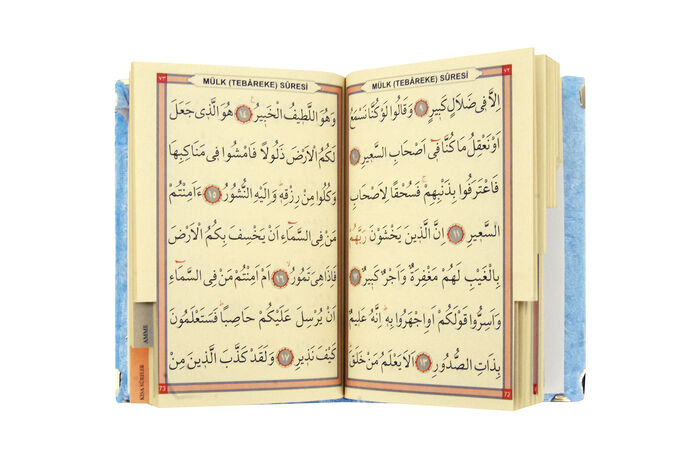 ٧٢
MÜLK (TEBÂREKE) SÛRESİ
اِلَّا فٖى ضَلَالٍ كَبٖيرٍ ٩ وَقَالُوا لَوْ كُنَّا نَسْمَعُ
اَوْ نَعْقِلُ مَا كُنَّا فٖٓى اَصْحَابِ السَّعٖيرِ ١٠
فَاعْتَرَفُوا بِذَنْبِهِمْۚ فَسُحْقًا لِاَصْحَابِ
السَّعٖيرِ ١١ اِنَّ الَّذٖينَ يَخْشَوْنَ رَبَّهُمْ
بِالْغَيْبِ لَهُمْ مَغْفِرَةٌ وَاَجْرٌ كَبٖيرٌ ١٢
وَاَسِرُّوا قَوْلَكُمْ اَوِ اجْهَرُوا بِهٖؕ اِنَّهُ عَلٖيمٌ
بِذَاتِ الصُّدُورِ ١٣ اَلَا يَعْلَمُ مَنْ خَلَقَؕ
72
٧٣
MÜLK (TEBÂREKE) SÛRESİ
وَهُوَ اللَّطٖيفُ الْخَبٖيرُ ١٤ هُوَ الَّذٖى جَعَلَ
لَكُمُ الْاَرْضَ ذَلُولًا فَامْشُوا فٖى مَنَاكِبِهَا
وَكُلُوا مِنْ رِزْقِهٖؕ وَاِلَيْهِ النُّشُورُ ١٥ ءَاَمِنْتُمْ
مَنْ فِى السَّمَٓاءِ اَنْ يَخْسِفَ بِكُمُ الْاَرْضَ
فَاِذَا هِىَ تَمُورُۙ ١٦ اَمْ اَمِنْتُمْ مَنْ فِى السَّمَٓاءِ
اَنْ يُرْسِلَ عَلَيْكُمْ حَاصِبًاؕ فَسَتَعْلَمُونَ
كَيْفَ نَذٖيرِ ١٧ وَلَقَدْ كَذَّبَ الَّذٖينَ مِنْ
73
AMME
KISA SÛRELER